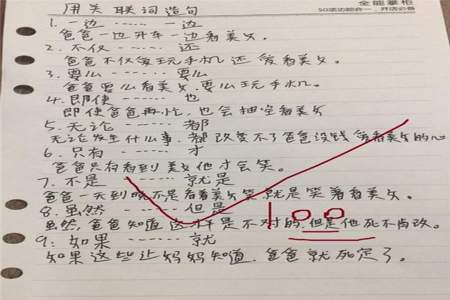 全能掌柜
50项功能合一，开店必备
用关联词造句
1. 一边 …… 一边
爸爸一边开车一边看美女。
2. 不仅 …… 还
爸爸不仅爱玩手机还爱看美女。
3. 要么 …… 要么
爸爸要么看美女，要么玩手机。
4. 即使 …… 也
即使爸爸再忙，也会抽空看美女
5. 无论 …… 都
无论发生什么事，都改变不了爸爸没钱爱看美女的心
6. 只有 …… 才
爸爸只有看到美女他才会笑。
7. 不是 …… 就是
爸爸一天到晚不是看着美女笑就是笑着看美女。
8. 虽然 …… 但是
虽然，爸爸知道这样是不对的，但是他死不肯改。
9. 如果 …… 就
如果这些让妈妈知道，爸爸就死定了。
100